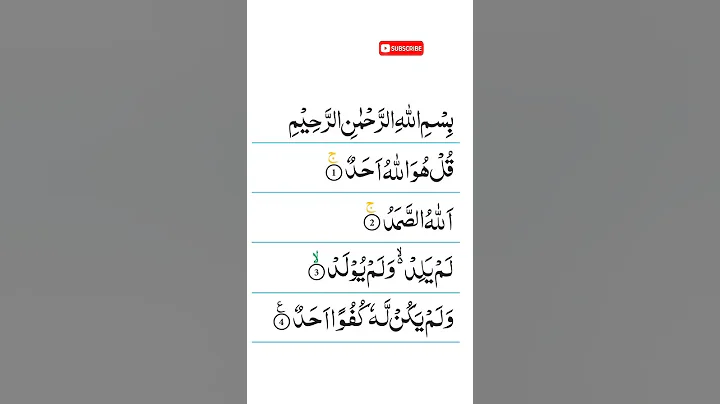 SUBSCRIBE
بِسْمِ اللّٰهِ الرَّحْمٰنِ الرَّحِيْمِ
قُلْ هُوَ اللّٰهُ اَحَدٌ ۚ 1
اَللّٰهُ الصَّمَدُ ۚ 2
لَمْ يَلِدْ ۙ۬ وَلَمْ يُوْلَدْ ۙ 3
وَلَمْ يَكُنْ لَّهٗ كُفُوًا اَحَدٌ ع 4